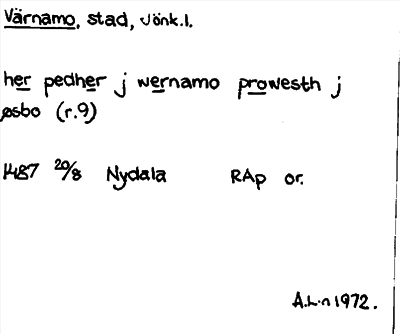 Värnamo, stad, Jönk.l.
her pedher j wernamo prowesth j
øsbo (r.9)
1487 20/8 Nydala RAp or.
A.L-n 1972.